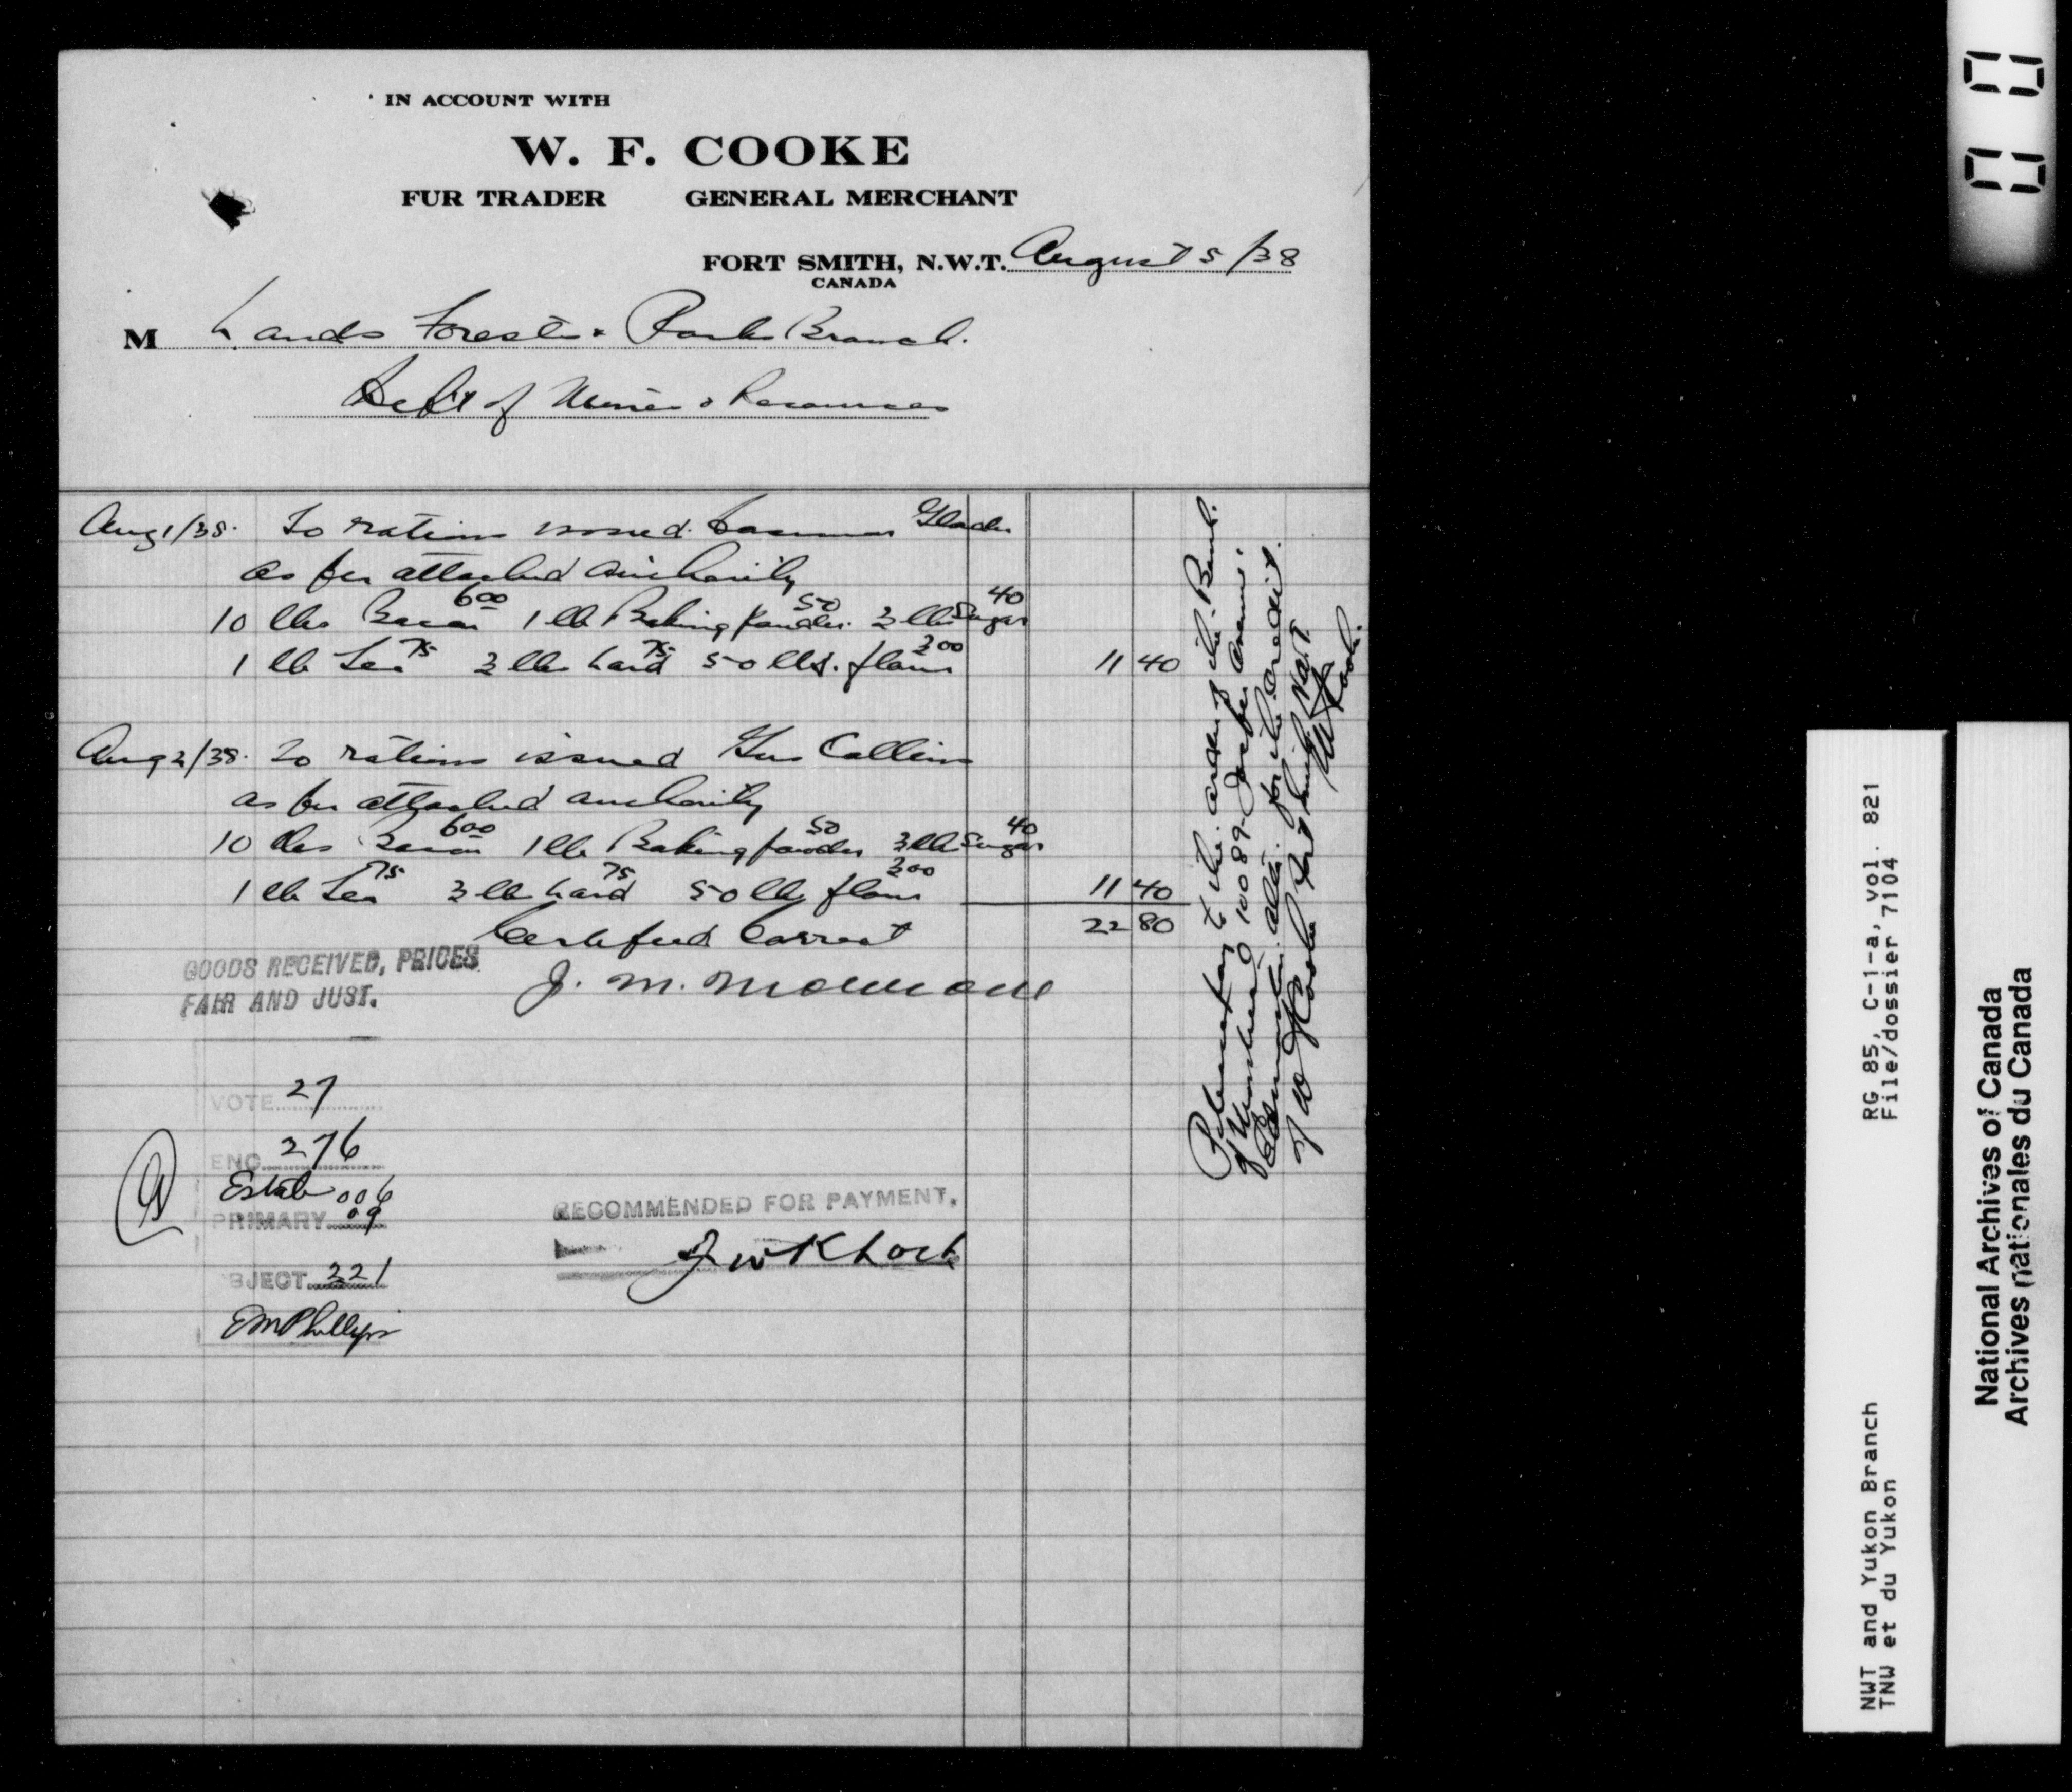 IN ACCOUNT WITH
W. F. COOKE
FUR TRADER GENERAL MERCHANT
FORT SMITH, N.W.T. August 5/38
CANADA
M Lands Forests & Parks Branch.
Dept of Mines & Resources
Aug 1/38. To rations issued
as per attached authority
10 lbs Bacon 6 00 1 lb Baking powder 50 3 lbs Sugar 40
1 lb Tea 75 3 lbs Lard 75 50 lbs. flour 3 00 11 40
Aug 2/38. To rations issued Gus Collins
as per attached authority
10 lbs Bacon 6 00 1 lb Baking powder 50 3 lb Sugar 40
1 lb Tea 75 3 lb Lard 75 50 lbs flour 3 00 11 40
22 80
Certified Correct
GOODS RECEIVED, PRICES
FAIR AND JUST.
J. M.
VOTE 27
ENC. 276
Estab 006
PRIMARY 09
BJECT 221
EM Phillips
RECOMMENDED FOR PAYMENT.
to the order of the Bank.
10089 Jasper Avenue.
Edmonton Alta. for the credit
of W F Cooke Fort Smith N.W.T.
W F Cooke.
RG 85, C-1-a, vol. 821
File/dossier 7104
NWT and Yukon Branch
TNW et du Yukon
National Archives of Canada
Archives nationales du Canada